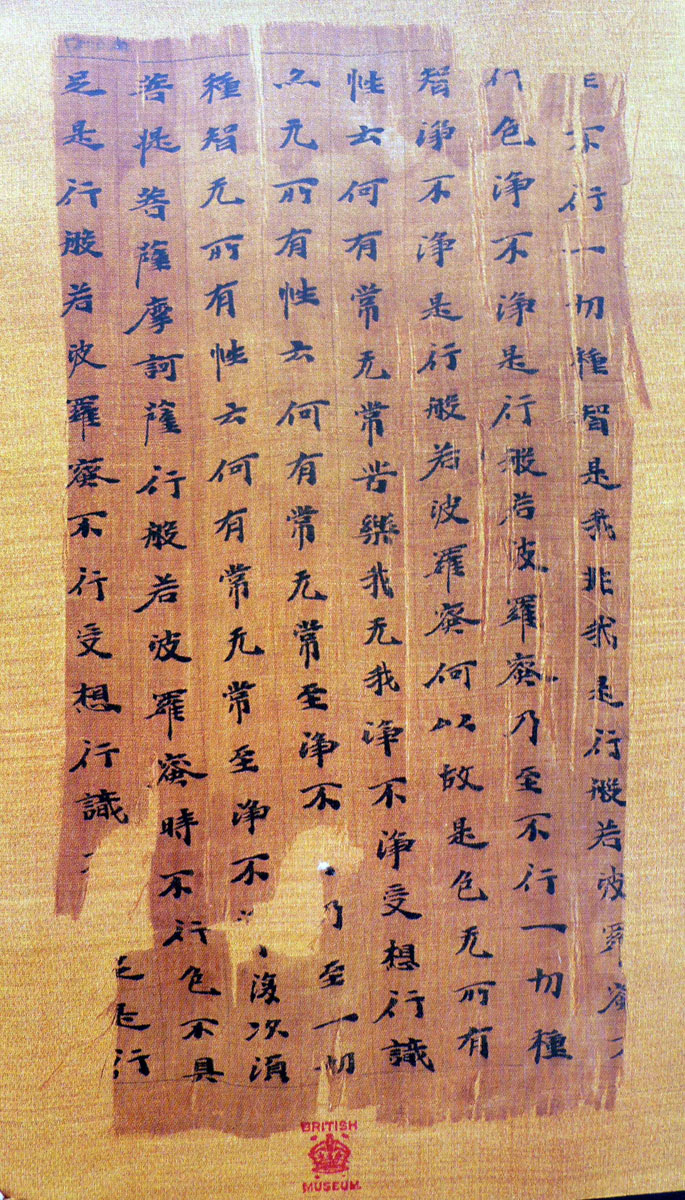 不行一切種智是我非我是行般若波羅蜜
行色淨不淨是行般若波羅蜜乃至不行一切種
智淨不淨是行般若波羅蜜何以故是色无所有
性云何有常无常苦樂我无我淨不淨受想行識
亦无所有性云何有常无常至淨不乃至一切
種智无所有性云何有常无常至淨不復次須
菩提菩薩摩訶薩行般若波羅蜜時不行色不具
足是行般若波羅蜜不行受想行識足是行
BRITISH
MUSEUM